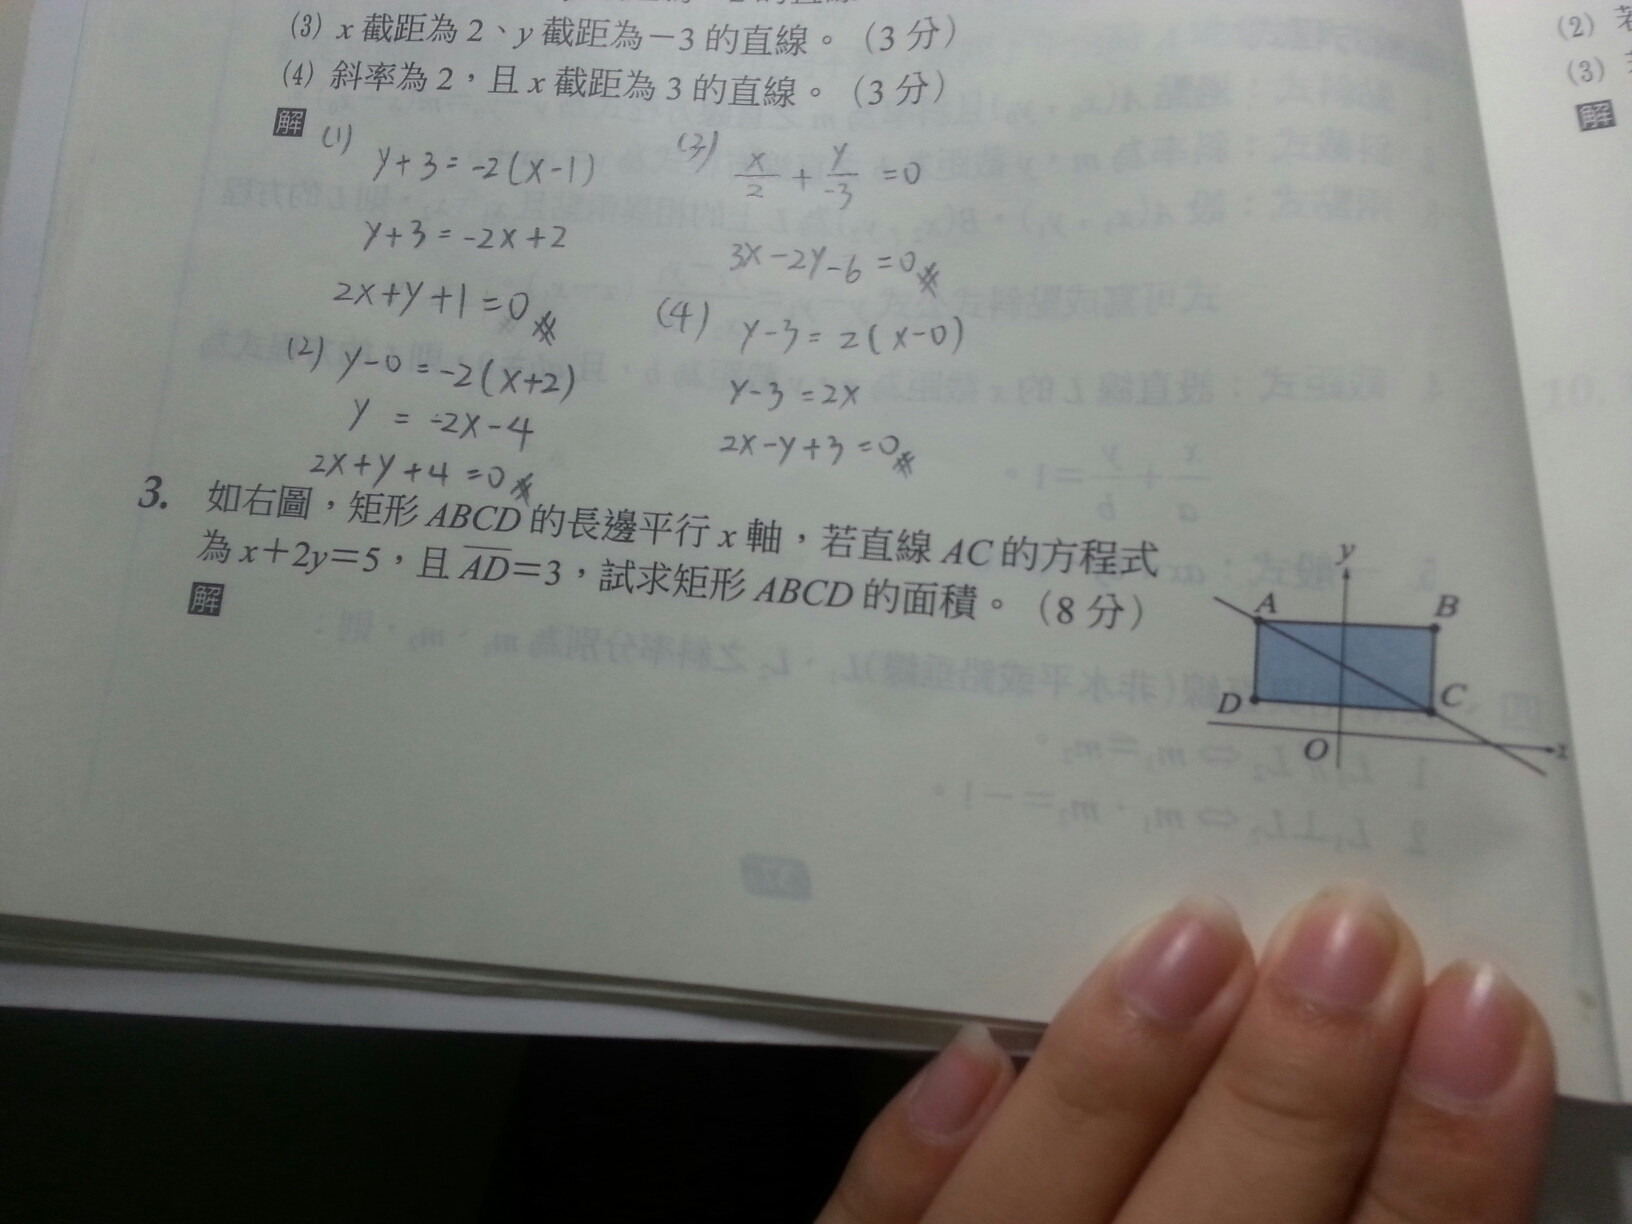 (3) x 截距為 2、y 截距為－3 的直線。（3 分）
(4) 斜率為 2，且 x 截距為 3 的直線。（3 分）
解
(1) y+3=-2(x-1)
y+3=-2x+2
2x+y+1=0
(2) y-0=-2(x+2)
y = -2x-4
2x+y+4=0
(3) x/2 + y/-3 =0
3x-2y-6=0
(4) y-3=2(x-0)
y-3=2x
2x-y+3=0
3. 如右圖，矩形 ABCD 的長邊平行 x 軸，若直線 AC 的方程式
為 x＋2y＝5，且 AD＝3，試求矩形 ABCD 的面積。（8 分）
解
y
A B
D C
O x
(2)
(3)
解